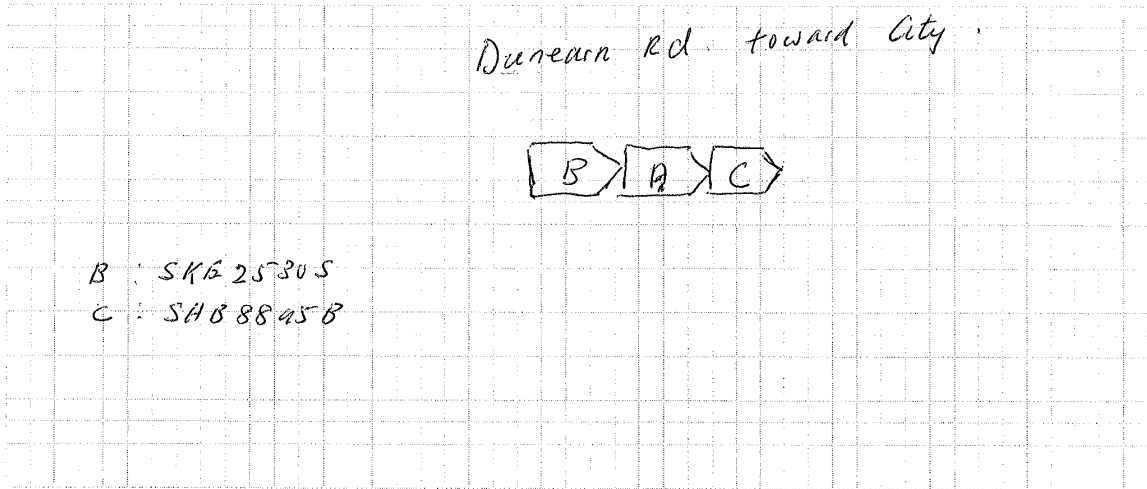 Dunearn Rd. toward City.
B A C
B : SKE 2530S
C : SHB 8895B